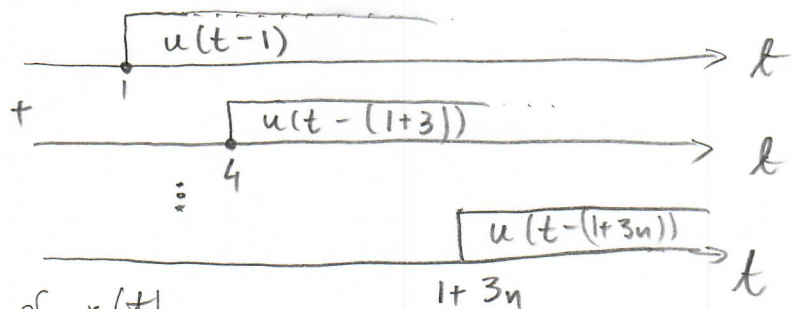 u(t-1)
t
1
+
u(t-(1+3)) ...
t
4
⋮
u(t-(1+3n))
t
1+3n
of x(t)